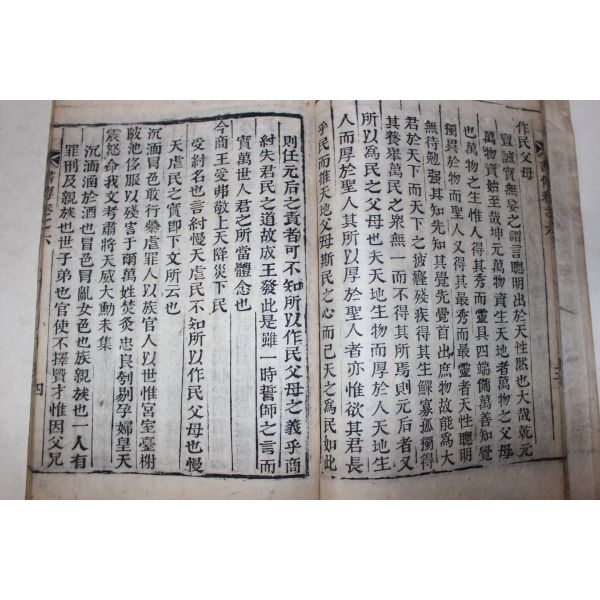 作民父母
亶誠實無妄之謂言聰明出於天性然也大哉乾元
萬物資始至哉坤元萬物資生天地者萬物之父母
也萬物之生惟人得其秀而靈具四端備萬善知覺
獨異於物而聖人又得其最秀而最靈者天性聰明
無待勉强其知先知其覺先覺首出庶物故能爲大
君於天下而天下之疲癃殘疾得其生鰥寡孤獨得
其養舉萬民之衆無一而不得其所焉則元后者又
所以爲民之父母也夫天地生物而厚於人天地生
人而厚於聖人其所以厚於聖人者亦惟欲其君長
乎民而推天地父母斯民之心而已天之爲民如此
三
則任元后之責者可不知所以作民父母之義乎商
紂失君民之道故武王發此是雖一時誓師之言而
實萬世人君之所當體念也
今商王受弗敬上天降災下民
受紂名也言紂慢天虐民不知所以作民父母也慢
天虐民之實即下文所云也
沉湎冒色敢行暴虐罪人以族官人以世惟宮室臺榭
陂池侈服以殘害于爾萬姓焚炙忠良刳剔孕婦皇天
震怒命我文考肅將天威大勳未集
沉湎溺於酒也冒色冒亂女色也族親族也一人有
罪刑及親族也世子弟也官使不擇賢才惟因父兄
書傳卷之六
四